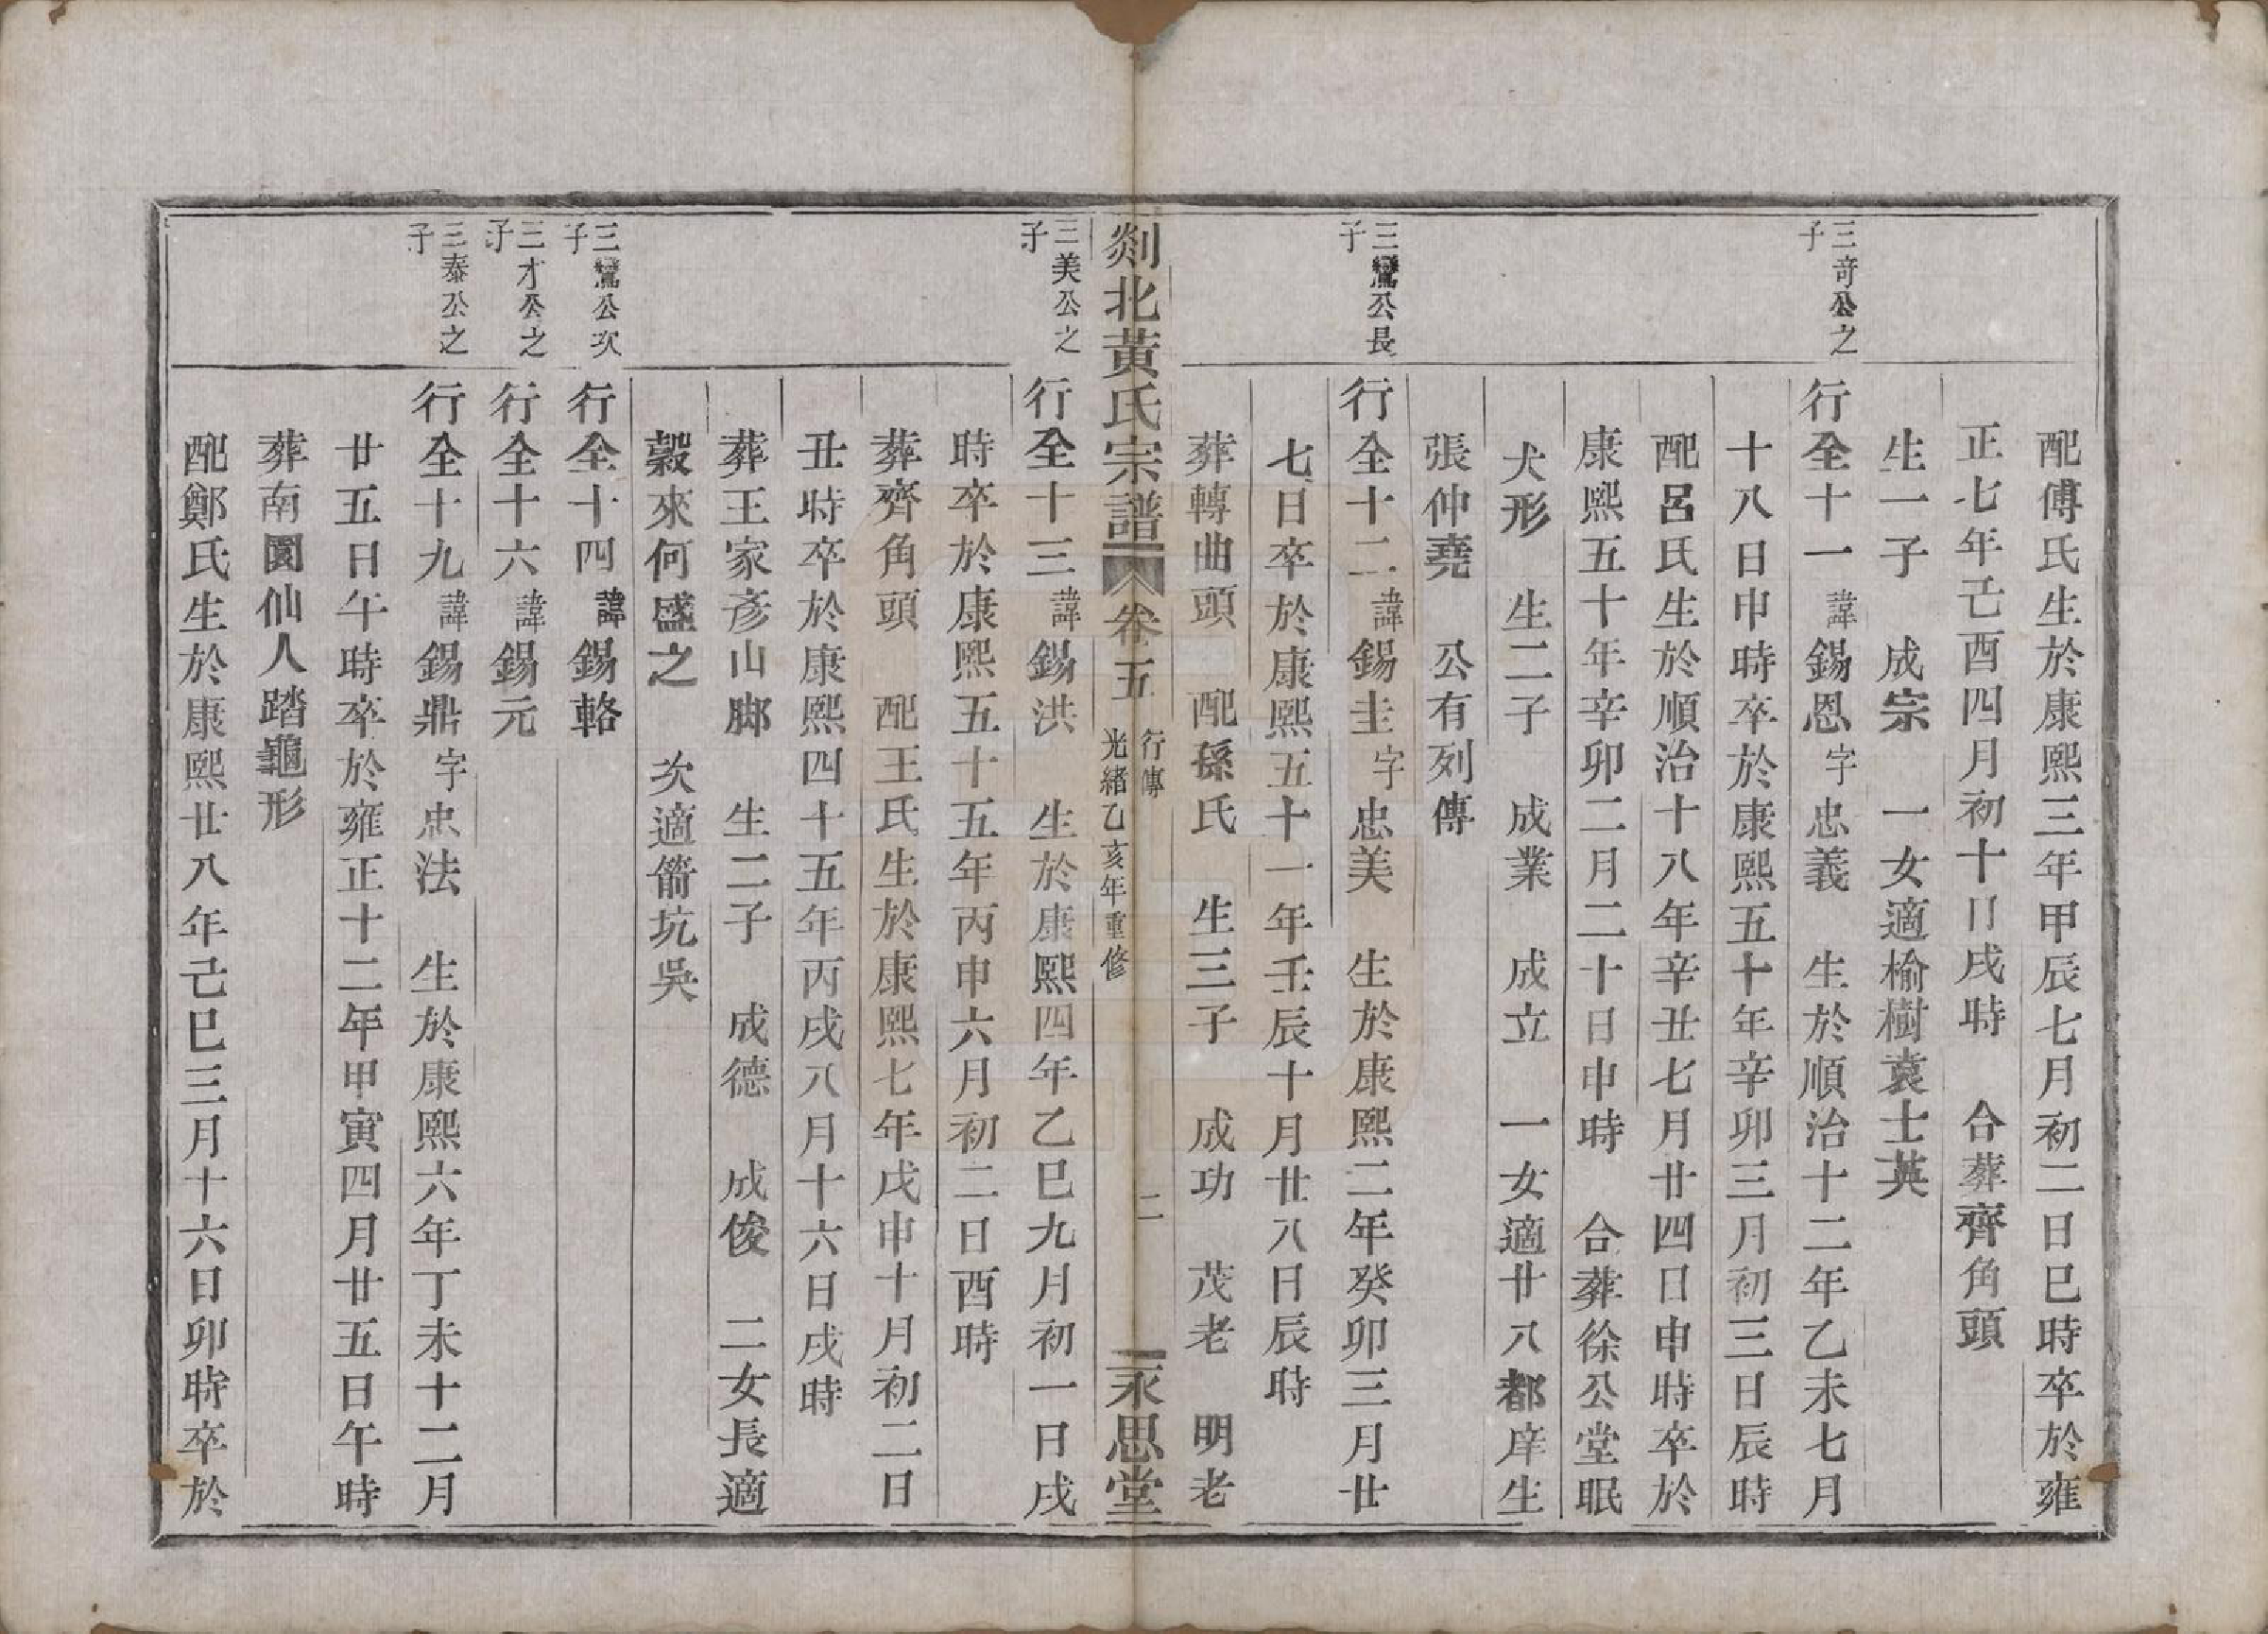 配傅氏生於康熙三年甲辰七月初二日巳時卒於雍
正七年己酉四月初十日戌時　合葬齊角頭
生一子　成宗　一女適榆樹袁士英
三奇公之子
行全十一諱錫恩字忠義　生於順治十二年乙未七月
十八日申時卒於康熙五十年辛卯三月初三日辰時
配呂氏生於順治十八年辛丑七月廿四日申時卒於
康熙五十年辛卯二月二十日申時　合葬徐公堂眠
犬形　生二子　成業　成立　一女適廿八都庠生
張仲堯　公有列傳
三鸞公長子
行全十二諱錫圭字忠美　生於康熙二年癸卯三月廿
七日卒於康熙五十一年壬辰十月廿八日辰時
葬轉曲頭　配孫氏　生三子　成功　茂老　明老
剡北黃氏宗譜　卷五　行傳　光緒乙亥年重修　二　永思堂
三美公之子
行全十三諱錫洪　生於康熙四年乙巳九月初一日戌
時卒於康熙五十五年丙申六月初二日酉時
葬齊角頭　配王氏生於康熙七年戊申十月初二日
丑時卒於康熙四十五年丙戌八月十六日戌時
葬王家彥山脚　生二子　成德　成俊　二女長適
穀來何盛之　次適箭坑吳
三鸞公次子
行全十四諱錫輅
三才公之子
行全十六諱錫元
三泰公之子
行全十九諱錫鼎字忠法　生於康熙六年丁未十二月
廿五日午時卒於雍正十二年甲寅四月廿五日午時
葬南園仙人踏龜形
配鄭氏生於康熙廿八年己巳三月十六日卯時卒於